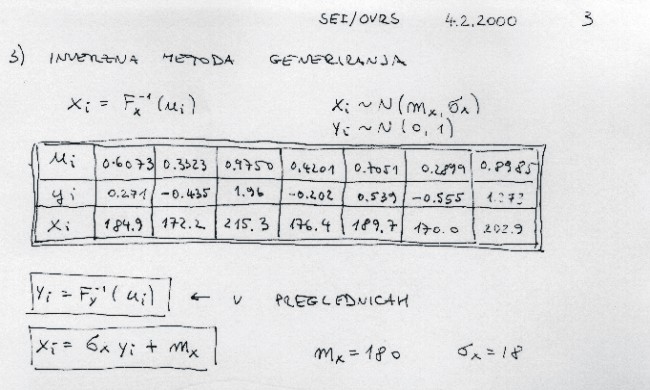 SEI/OVRS 4.2.2000 3
3) INVERZNA METODA GENERIRANJA
xi = Fx⁻¹(ui) xi ~ N(mx, σx)
yi ~ N(0,1)
ui 0.6073 0.3323 0.9750 0.4201 0.7051 0.2899 0.8985
yi 0.271 -0.435 1.96 -0.202 0.539 -0.555 1.273
xi 184.9 172.2 215.3 176.4 189.7 170.0 202.9
yi = Fy⁻¹(ui) ← V PREGLEDNICAH
xi = σx yi + mx mx = 180 σx = 18